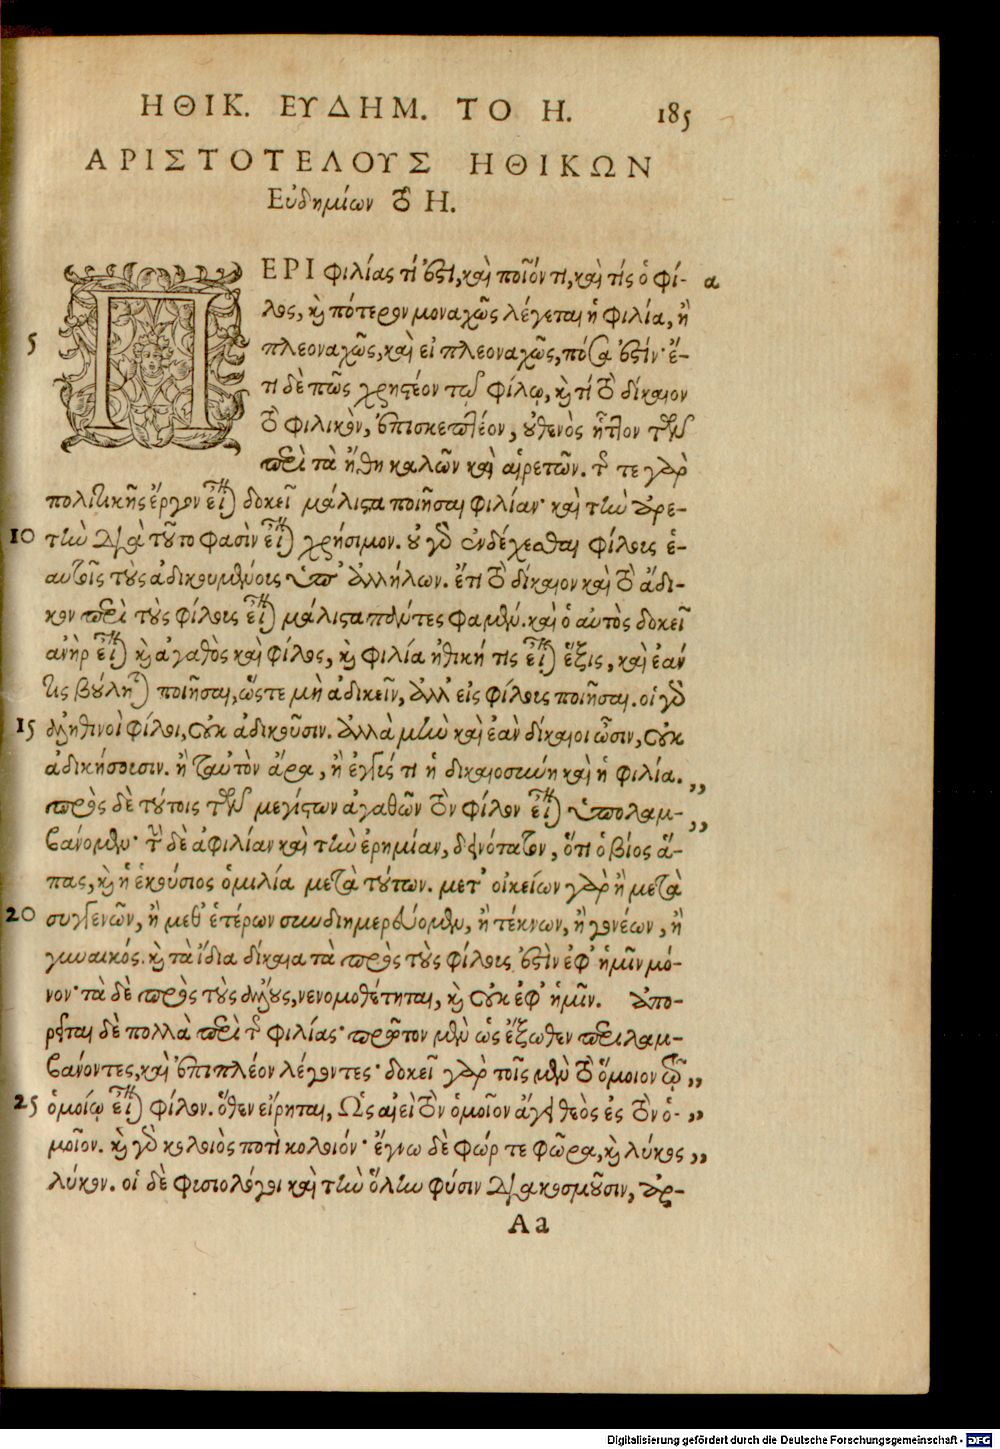 ΗΘΙΚ. ΕΥΔΗΜ. ΤΟ Η. 185
ΑΡΙΣΤΟΤΕΛΟΥΣ ΗΘΙΚΩΝ
Εὐδημίων τὸ Η.
ΠΕΡΙ φιλίας τί ἐστι, καὶ ποῖόν τι, καὶ τίς ὁ φί- α
λος, καὶ πότερον μοναχῶς λέγεται ἡ φιλία, ἢ
5 πλεοναχῶς, καὶ εἰ πλεοναχῶς, πόσα ἐστίν· ἔ-
τι δὲ πῶς χρηστέον τῷ φίλῳ, καὶ τί τὸ δίκαιον
τὸ φιλικὸν, ἐπισκεπτέον, οὐθενὸς ἧττον τῶν
περὶ τὰ ἤθη καλῶν καὶ αἱρετῶν. τῆς τε γὰρ
πολιτικῆς ἔργον εἶναι δοκεῖ μάλιστα ποιῆσαι φιλίαν· καὶ τὴν ἀρε-
10 τὴν διὰ τοῦτο φασὶν εἶναι χρήσιμον. οὐ γὰρ ἐνδέχεσθαι φίλους ἑ-
αυτοῖς τοὺς ἀδικουμένοις ὑπ' ἀλλήλων. ἔτι τὸ δίκαιον καὶ τὸ ἄδι-
κον περὶ τοὺς φίλους εἶναι μάλιστα πάντες φαμέν. καὶ ὁ αὐτὸς δοκεῖ
ἀνὴρ εἶναι καὶ ἀγαθὸς καὶ φίλος, καὶ φιλία ἠθική τις εἶναι ἕξις, καὶ ἐάν
τις βούληται ποιῆσαι, ὥστε μὴ ἀδικεῖν, ἀλλ' εἰς φίλους ποιῆσαι. οἱ γὰρ
15 ἀληθινοὶ φίλοι, οὐκ ἀδικοῦσιν. ἀλλὰ μὴν καὶ ἐὰν δίκαιοι ὦσιν, οὐκ
ἀδικήσουσιν. ἢ ταὐτὸν ἄρα, ἢ ἐγγύς τι ἡ δικαιοσύνη καὶ ἡ φιλία. ,,
πρὸς δὲ τούτοις τῶν μεγίστων ἀγαθῶν τὸν φίλον εἶναι ὑπολαμ- ,,
βάνομεν· τὴν δὲ ἀφιλίαν καὶ τὴν ἐρημίαν, δεινότατον, ὅτι ὁ βίος ἅ-
πας, καὶ ἡ ἑκούσιος ὁμιλία μετὰ τούτων. μετ' οἰκείων γὰρ ἢ μετὰ
20 συγγενῶν, ἢ μεθ' ἑτέρων συνδιημερεύομεν, ἢ τέκνων, ἢ γονέων, ἢ
γυναικός. καὶ τὰ ἴδια δίκαια τὰ πρὸς τοὺς φίλους ἐστὶν ἐφ' ἡμῖν μό-
νον· τὰ δὲ πρὸς τοὺς ἄλλους, νενομοθέτηται, καὶ οὐκ ἐφ' ἡμῖν. Ἀπο-
ρεῖται δὲ πολλὰ περὶ τῆς φιλίας· πρῶτον μὲν ὡς ἔξωθεν περιλαμ-
βάνοντες, καὶ ἐπιπλέον λέγοντες· δοκεῖ γὰρ τοῖς μὲν τὸ ὅμοιον τῷ ,,
25 ὁμοίῳ εἶναι φίλον. ὅθεν εἴρηται, Ὡς αἰεὶ τὸν ὁμοῖον ἄγει θεὸς ἐς τὸν ὁ- ,,
μοῖον. καὶ γὰρ κολοιὸς ποτὶ κολοιόν· ἔγνω δὲ φώρ τε φῶρα, καὶ λύκος ,,
λύκον. οἱ δὲ φισιολόγοι καὶ τὴν ὅλην φύσιν διακοσμοῦσιν, ἀρ-
Aa
Digitalisierung gefördert durch die Deutsche Forschungsgemeinschaft - DFG